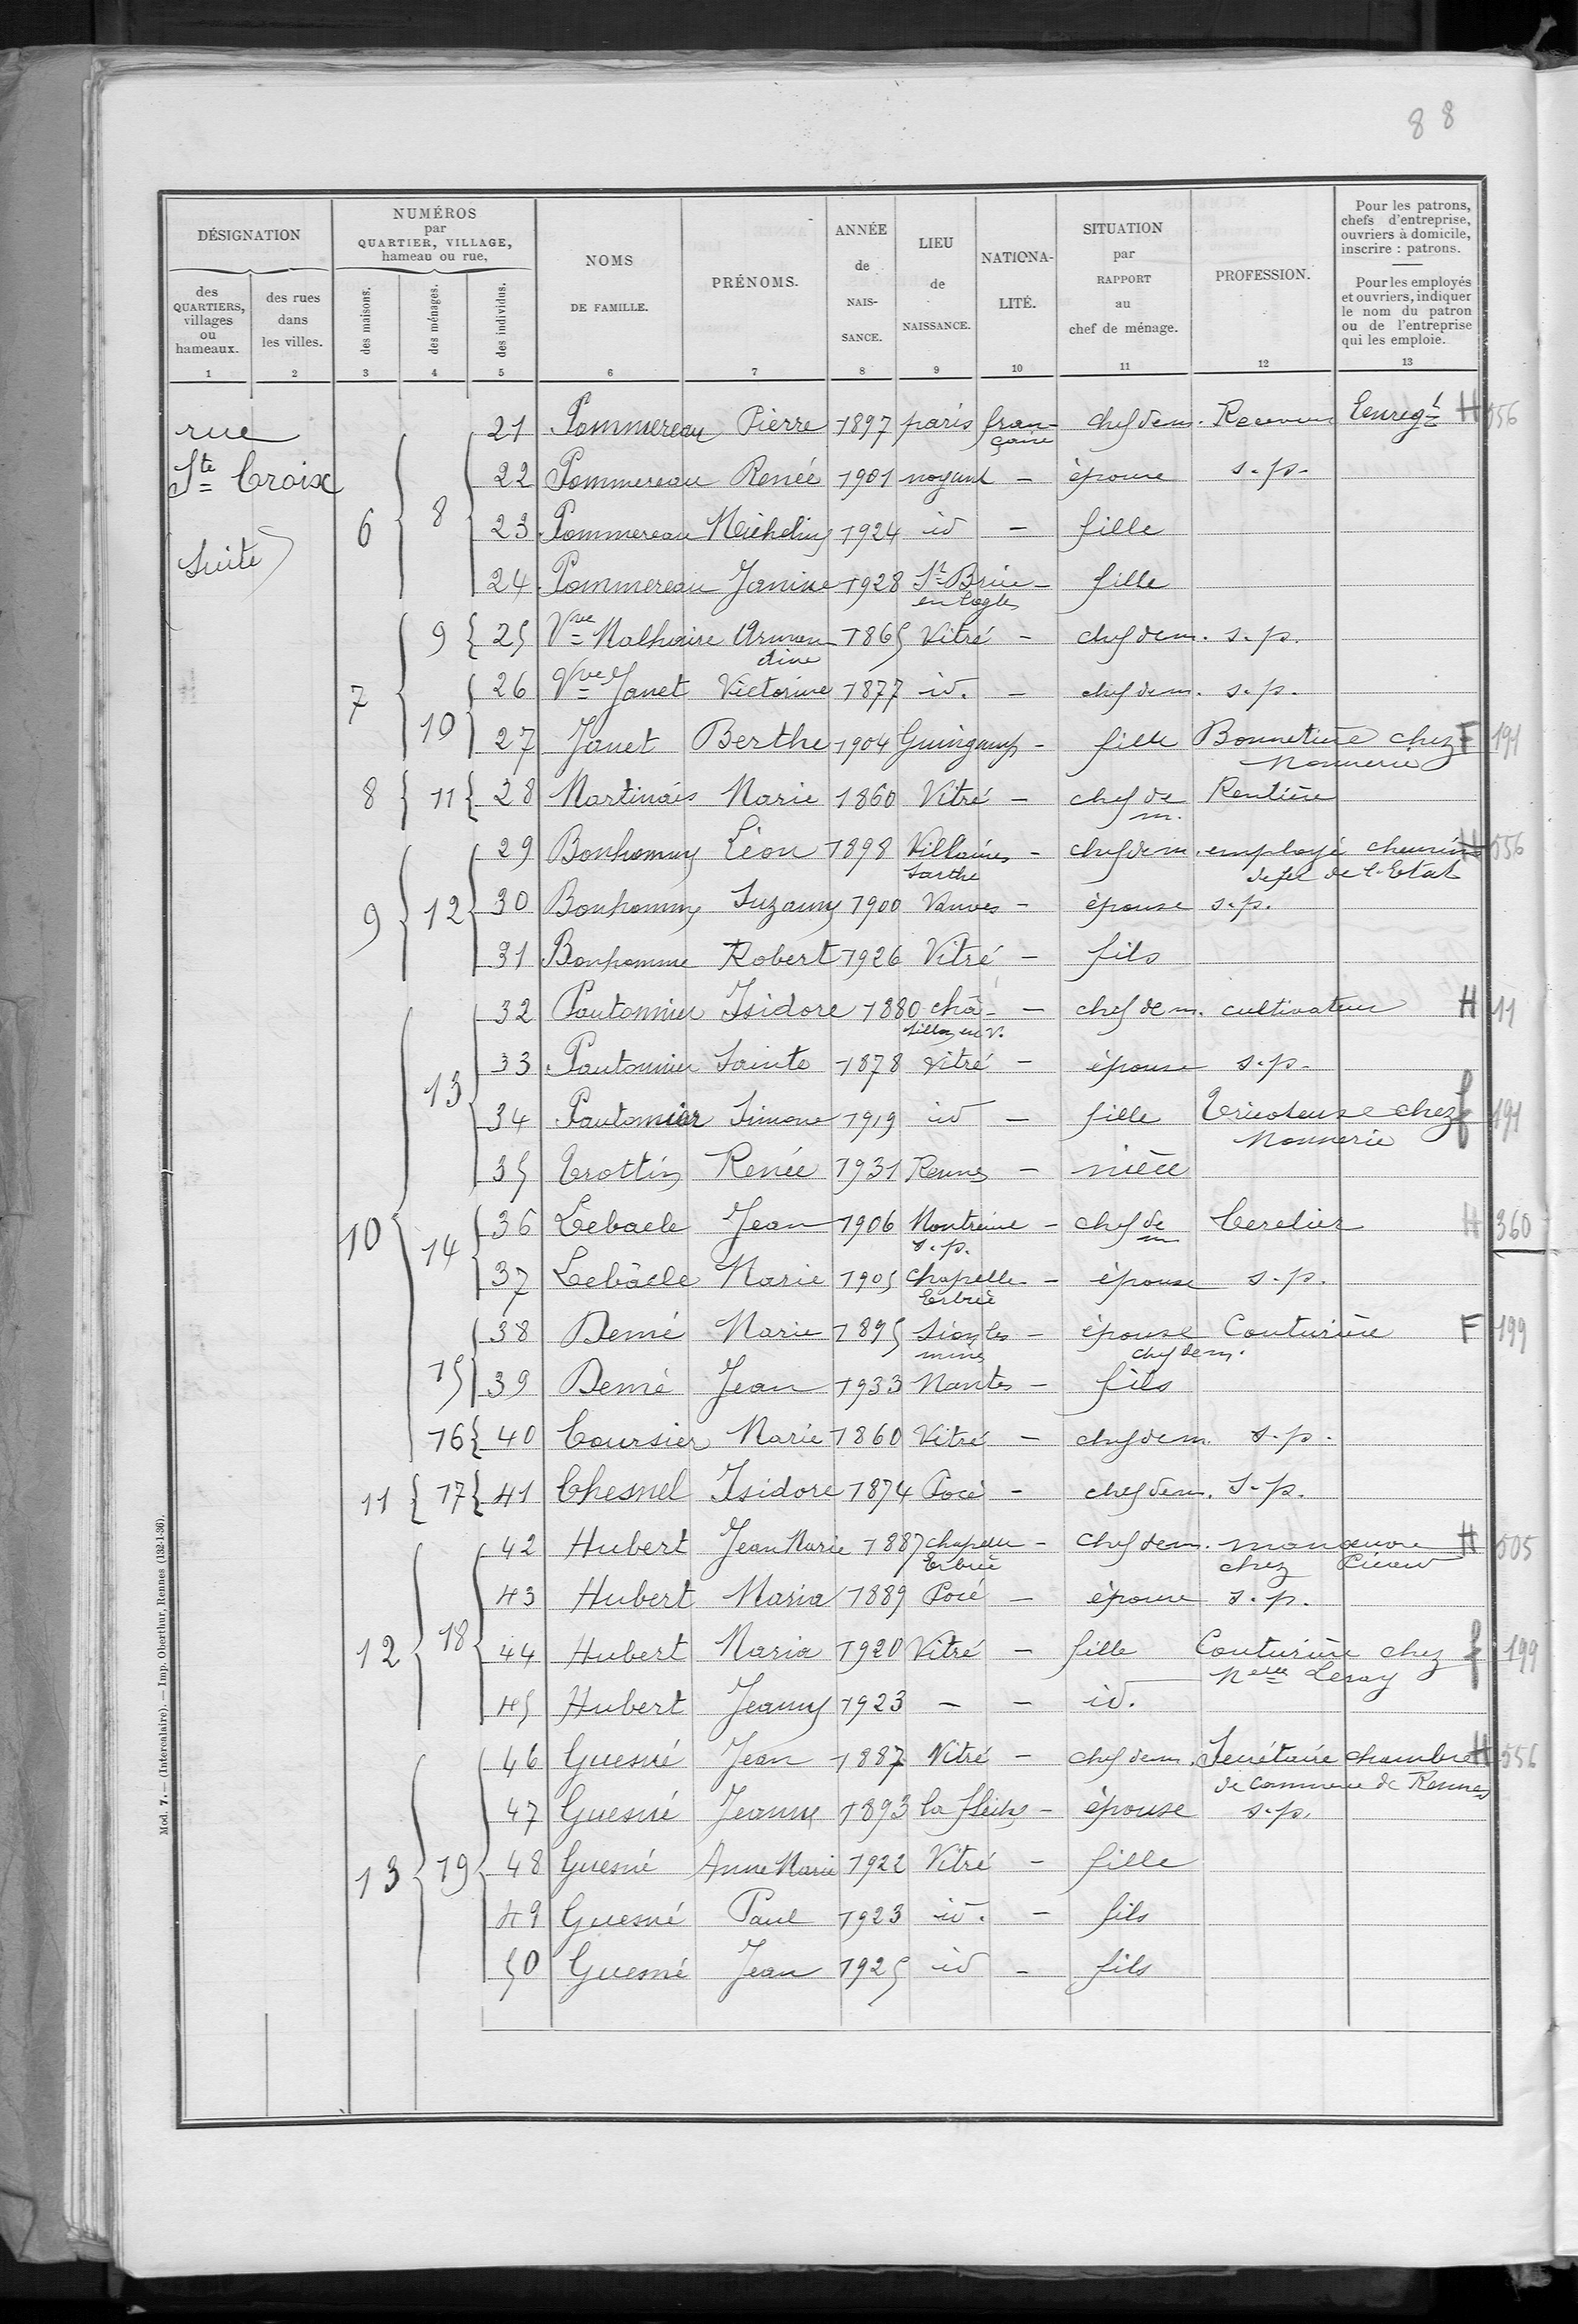 88
DÉSIGNATION
NUMÉROS
par
QUARTIER, VILLAGE,
hameau ou rue,
NOMS
DE FAMILLE.
PRÉNOMS.
ANNÉE
de
NAIS-
SANCE.
LIEU
de
NAISSANCE.
NATIONA-
LITÉ.
SITUATION
par
RAPPORT
au
chef de ménage.
PROFESSION.
Pour les patrons,
chefs d'entreprise,
ouvriers à domicile,
inscrire : patrons.
Pour les employés
et ouvriers, indiquer
le nom du patron
ou de l'entreprise
qui les emploie.
des
QUARTIERS,
villages
ou
hameaux.
des rues
dans
les villes.
des maisons.
des ménages.
des individus.
1 2 3 4 5 6 7 8 9 10 11 12 13
rue
Ste Croix
(suite)
6 8
21 Pommereau Pierre 1897 paris fran- chef dem. Receveur Enregt H 556
çaise
22 Pommereau Renée 1901 noyant - épouse s.p.
23 Pommereau Micheline 1924 id - fille
24 Pommereau Janine 1928 St Brice - fille
en Cogles
7 9 25 Vve Malhaire Arman 1865 Vitré - chef dem. s.p.
dine
10 26 Vve Janet Victorine 1877 id. - chef dem. s.p.
27 Janet Berthe 1904 Guingamp - fille Bonnetière chez F 191
Monnerie
8 11 28 Martinais Marie 1860 Vitré - chef de Rentière
m.
9 12 29 Bonhomme Léon 1898 Villaines - chef dem. employé chemins H 556
Sarthe de fer de l'Etat
30 Bonhomme Suzanne 1900 Vanves - épouse s.p.
31 Bonhomme Robert 1926 Vitré - fils
10 13 32 Pautonnier Isidore 1880 châ- - chef dem. cultivateur H 11
tillon en V.
33 Pautonnier Sainte 1878 Vitré - épouse s.p.
34 Pautonnier Simone 1919 id - fille Tricoteuse chez f 191
Monnerie
35 Trottin Renée 1931 Rennes - nièce
14 36 Lebâcle Jean 1906 Montreuil - chef de Cerclier H 360
s.p. m
37 Lebâcle Marie 1905 Chapelle - épouse s.p.
Erbrée
15 38 Demé Marie 1895 Sion les - épouse Couturière F 199
mines chef dem.
39 Demé Jean 1933 Nantes - fils
16 40 Coursier Marie 1860 Vitré - chef dem. s.p.
11 17 41 Chesnel Isidore 1874 Pocé - chef dem. s.p.
12 18 42 Hubert Jean Marie 1887 chapelle - chef dem. manœuvre H 505
Erbrée chez
43 Hubert Maria 1889 Pocé - épouse s.p.
44 Hubert Maria 1920 Vitré - fille Couturière chez f 199
45 Hubert Jeanne 1923 - - id.
13 19 46 Guesné Jean 1887 Vitré - chef dem. Secrétaire chambre H 556
de Commerce de Rennes
47 Guesné Jeanne 1893 la flèche - épouse s.p.
48 Guesné Anne Marie 1922 Vitré - fille
49 Guesné Paul 1923 id. - fils
50 Guesné Jean 1925 id - fils
Mod. 7. — (Intercalaire). — Imp. Oberthur, Rennes (132-1-36).